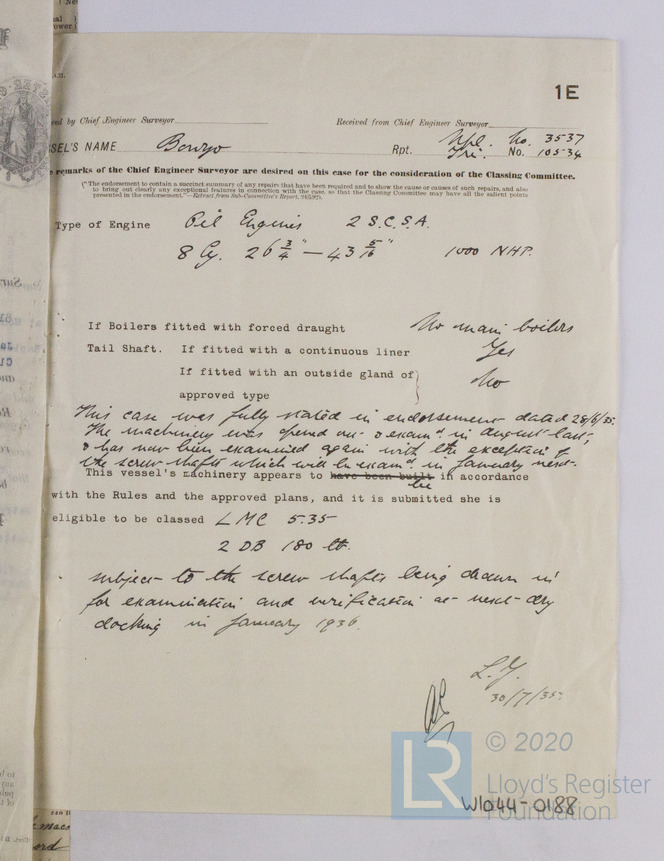 1E
ed by Chief Engineer Surveyor
Received from Chief Engineer Surveyor
SEL'S NAME Bowyo Rpt. Npl. No. 3537
Tri. No. 10534
e remarks of the Chief Engineer Surveyor are desired on this case for the consideration of the Classing Committee.
("The endorsement to contain a succinct summary of any repairs that have been required and to show the cause or causes of such repairs, and also
to bring out clearly any exceptional features in connection with the case, so that the Classing Committee may have all the salient points
presented in the endorsement."—Extract from Sub-Committee's Report,
Type of Engine Oil Engines 2 S.C.S.A.
8 Cy. 26 3/4" — 43 5/16" 1000 NHP.
If Boilers fitted with forced draught No main boilers
Tail Shaft. If fitted with a continuous liner Yes
If fitted with an outside gland of
approved type } No
This case was fully stated in endorsement dated 28/6/35.
The machinery was opened out & examd. in August last,
& has now been examined again with the exception of
the screw shafts which will be examd. in January next.
This vessel's machinery appears to have been built be in accordance
with the Rules and the approved plans, and it is submitted she is
eligible to be classed LMC 5.35
2 DB 180 lb.
subject to the screw shafts being drawn in
for examination and verification at next dry
docking in January 1936.
L.Y.
30/7/35.
LR © 2020
Lloyd's Register
Foundation
W1044-0188